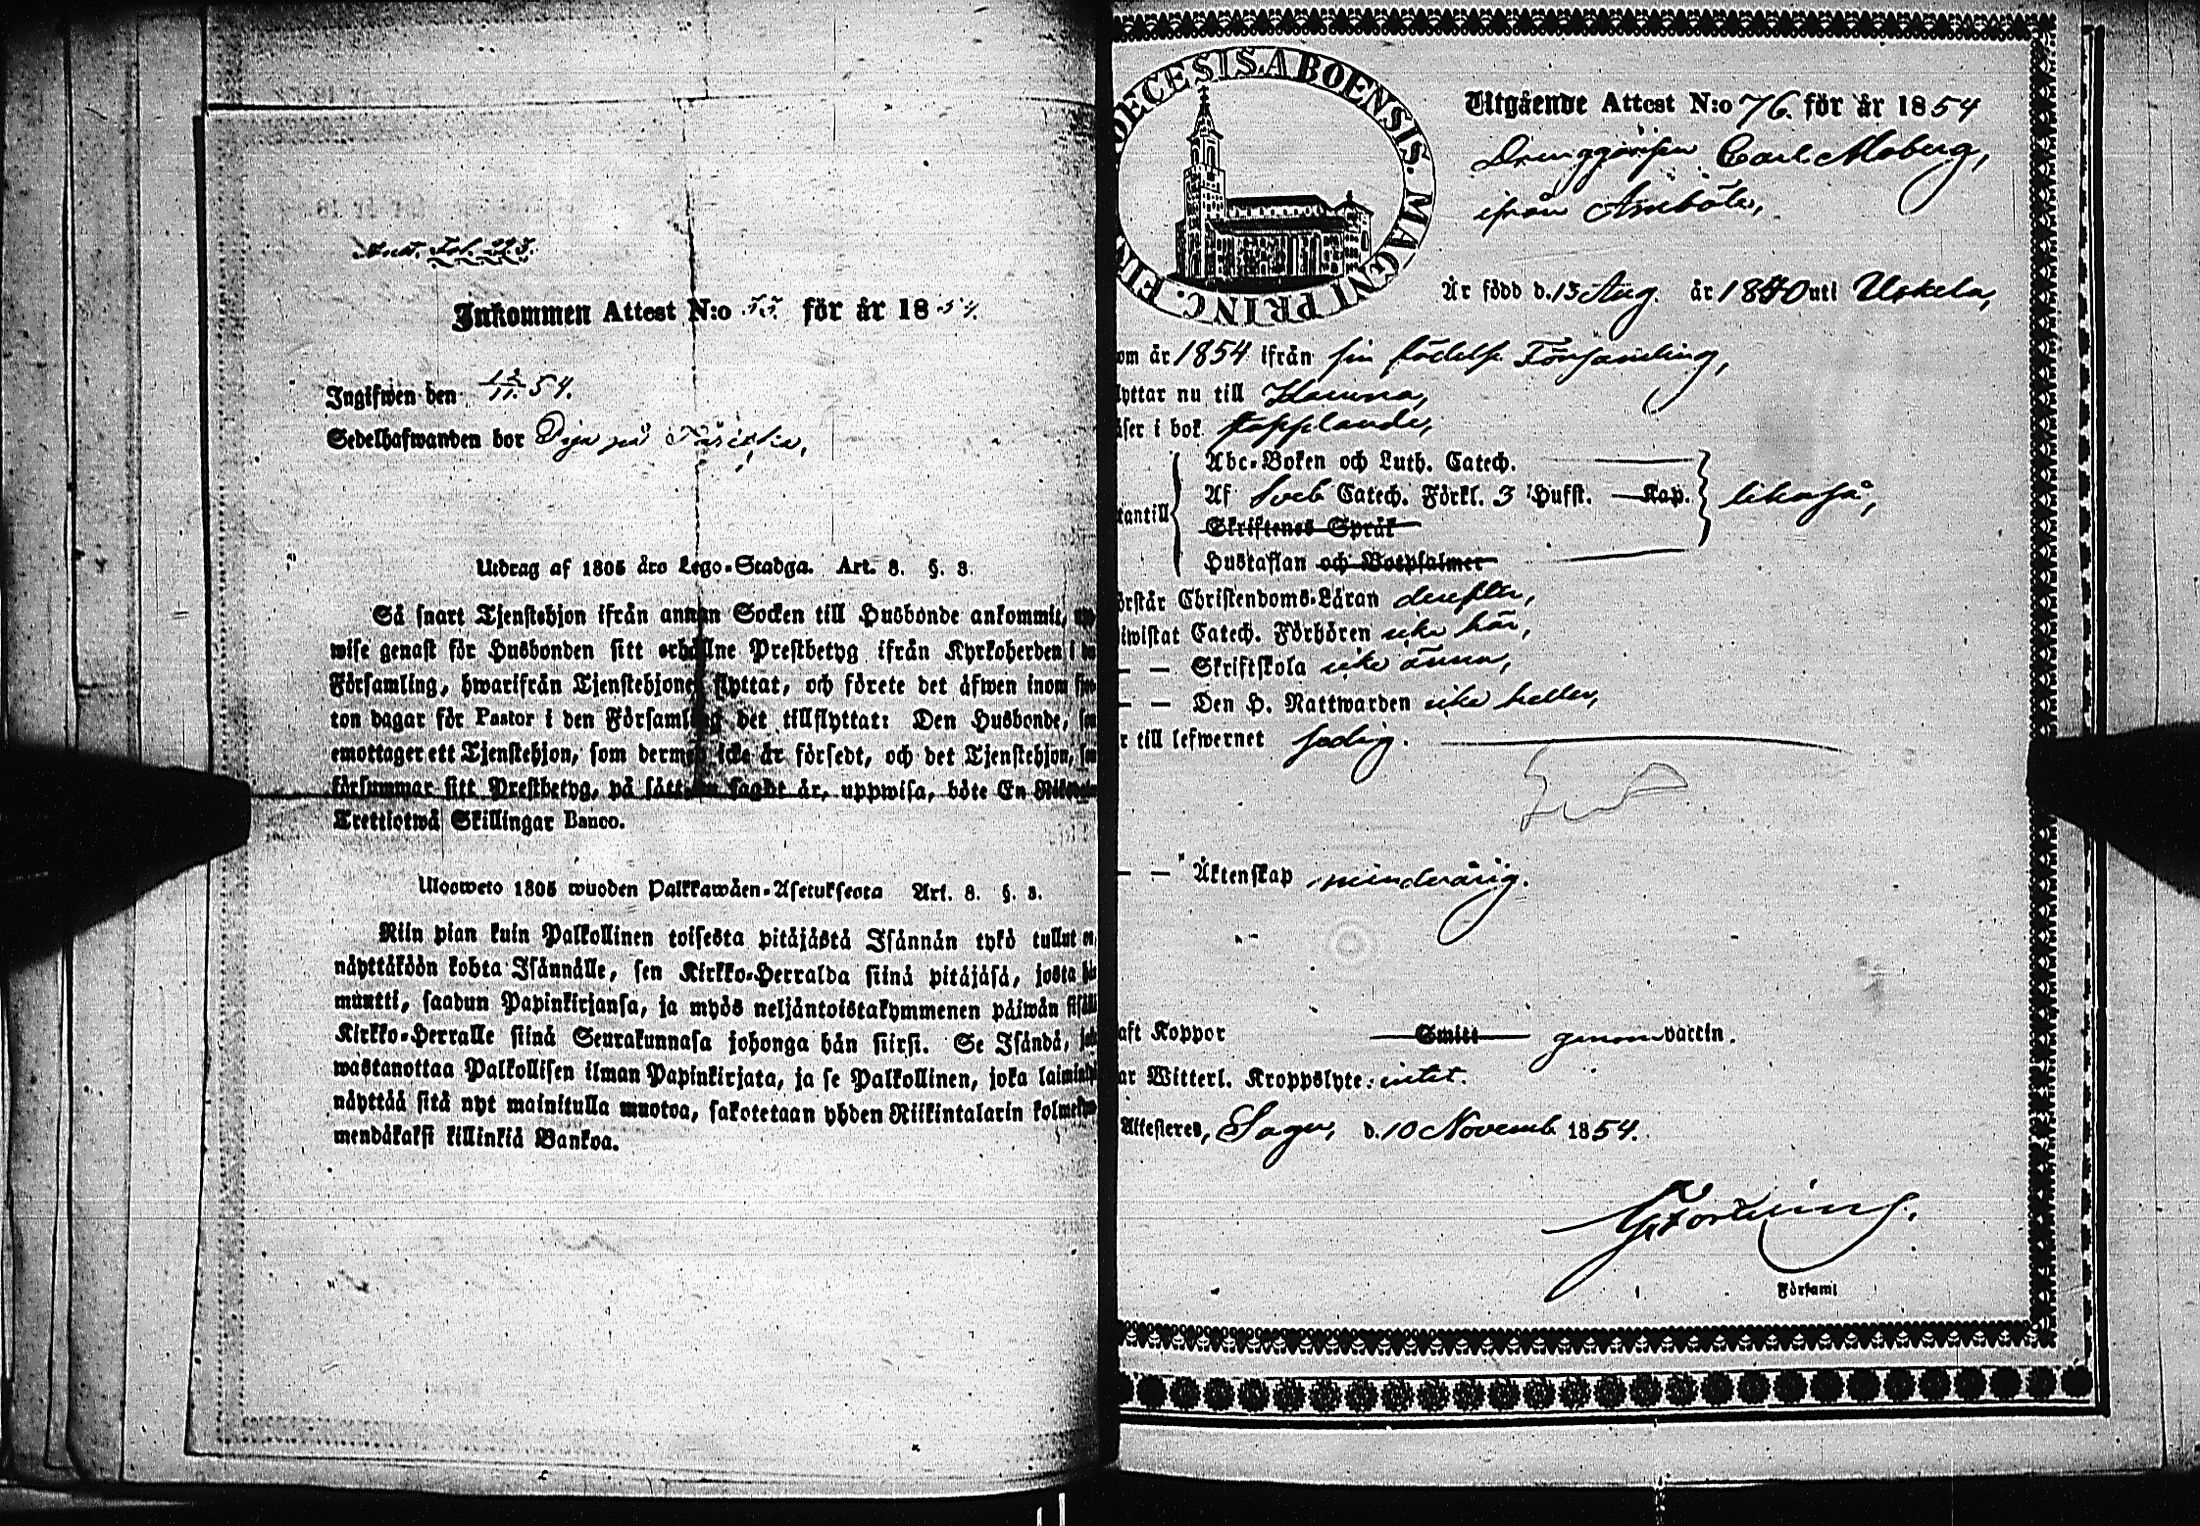 Ant. Fol. 223.
Inkommen Attest N:o 55. för år 1854.
Ingifwen den 12/11. 54.
Sedelhafwanden bor Pija på
Utdrag af 1805 års Lego-Stadga. Art. 8. §. 3.
Så snart Tjenstehjon ifrån annan Socken till Husbonde ankommit,
wise genast för Husbonden sitt erhållne Prestbetyg ifrån Kyrkoherden i
Församling, hwarifrån Tjenstehjonet flyttat, och förete det äfwen inom
ton dagar för Pastor i den Församling det tillflyttat: Den Husbonde,
emottager ett Tjenstehjon, som dermed icke är försedt, och det Tjenstehjon,
försummar sitt Prestbetyg, på sätt som sagdt är, uppwisa, böte En
Trettiotwå Skillingar Banco.
Ulosweto 1805 wuoden Palkkawäen-Asetuksesta Art. 8. §. 3.
Niin pian kuin Palkollinen toisesta pitäjästä Isännän tykö tullut on,
näyttäköön kohta Isännälle, sen Kirkko-Herralda siinä pitäjäsä, josta
muutti, saadun Papinkirjansa, ja myös neljäntoistakymmenen päiwän sisällä
Kirkko-Herralle siinä Seurakunnasa johonga hän siirsi. Se Isändä,
wastanottaa Palkollisen ilman Papinkirjata, ja se Palkollinen, joka
näyttää sitä nyt mainitulla muotoa, sakotetaan yhden Riikintalarin
mendäkaksi killinkiä Bankoa.
OECESIS. ABOENSIS. MAGNI PRINC. FIN
Utgående Attest N:o 76. för år 1854
Drenggåssen Carl Moberg,
ifrån
Är född d. 13 Aug. år 1840 uti Uskela,
om år 1854 ifrån sin födelse Församling,
lyttar nu till Karuna,
äser i bok stapplande,
Abc-Boken och Luth. Catech.
Af Sveb Catech. Förkl. 3 Hufst. Kap. likaså,
tantill
Skriftenes Språk
Hustaflan och Botpsalmer
örstår Christendoms-Läran derefter,
iwistat Catech. Förhören icke här,
— — Skriftskola icke ännu,
— — Den H. Nattwarden icke heller,
r till lefwernet sedig.
— — Äktenskap minderårig.
aft Koppor Smitt genom vaccin.
ar Witterl. Kroppslyte: intet.
Attesteres, Sagu, d. 10 Novemb. 1854.
Församl